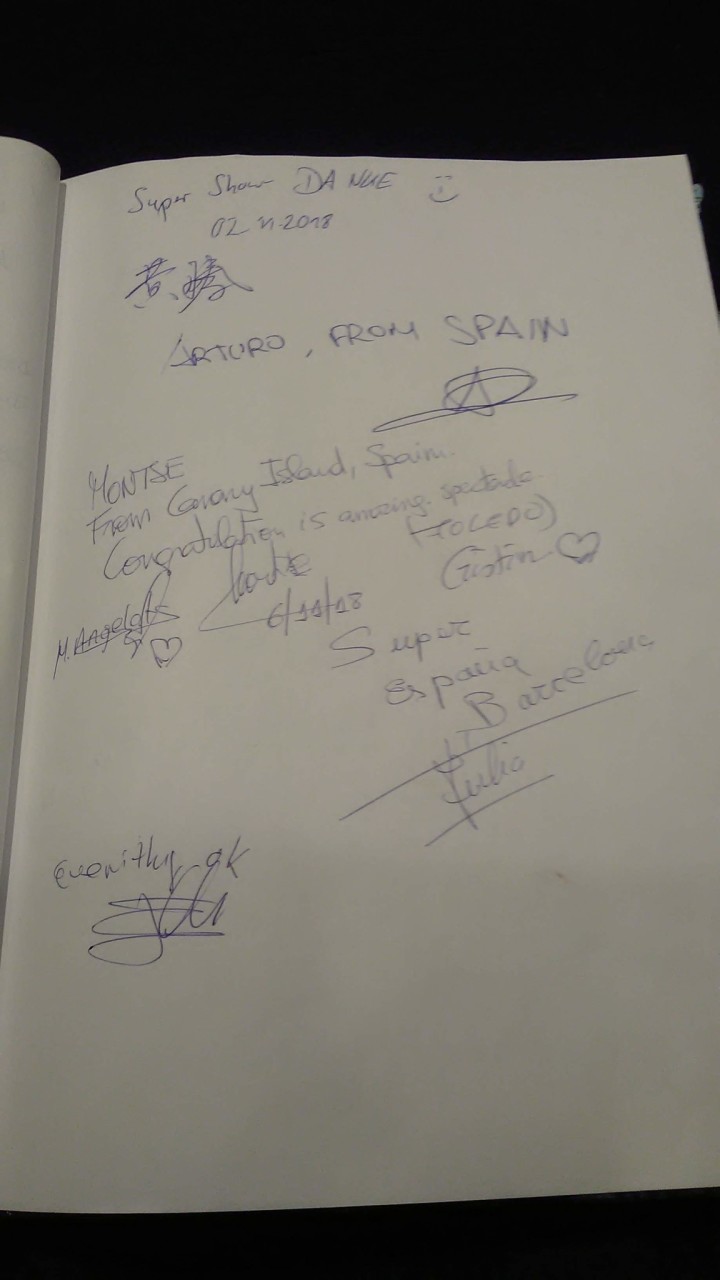 Super Show DANKE
02.11.2018
ARTURO, FROM SPAIN
MONTSE
From Canary Island, Spain.
Congratulation is amazing. spectacle.
(TOLEDO)
M. Angeles
6/11/18
Super
España
Barcelona
Julia
Everithy ok